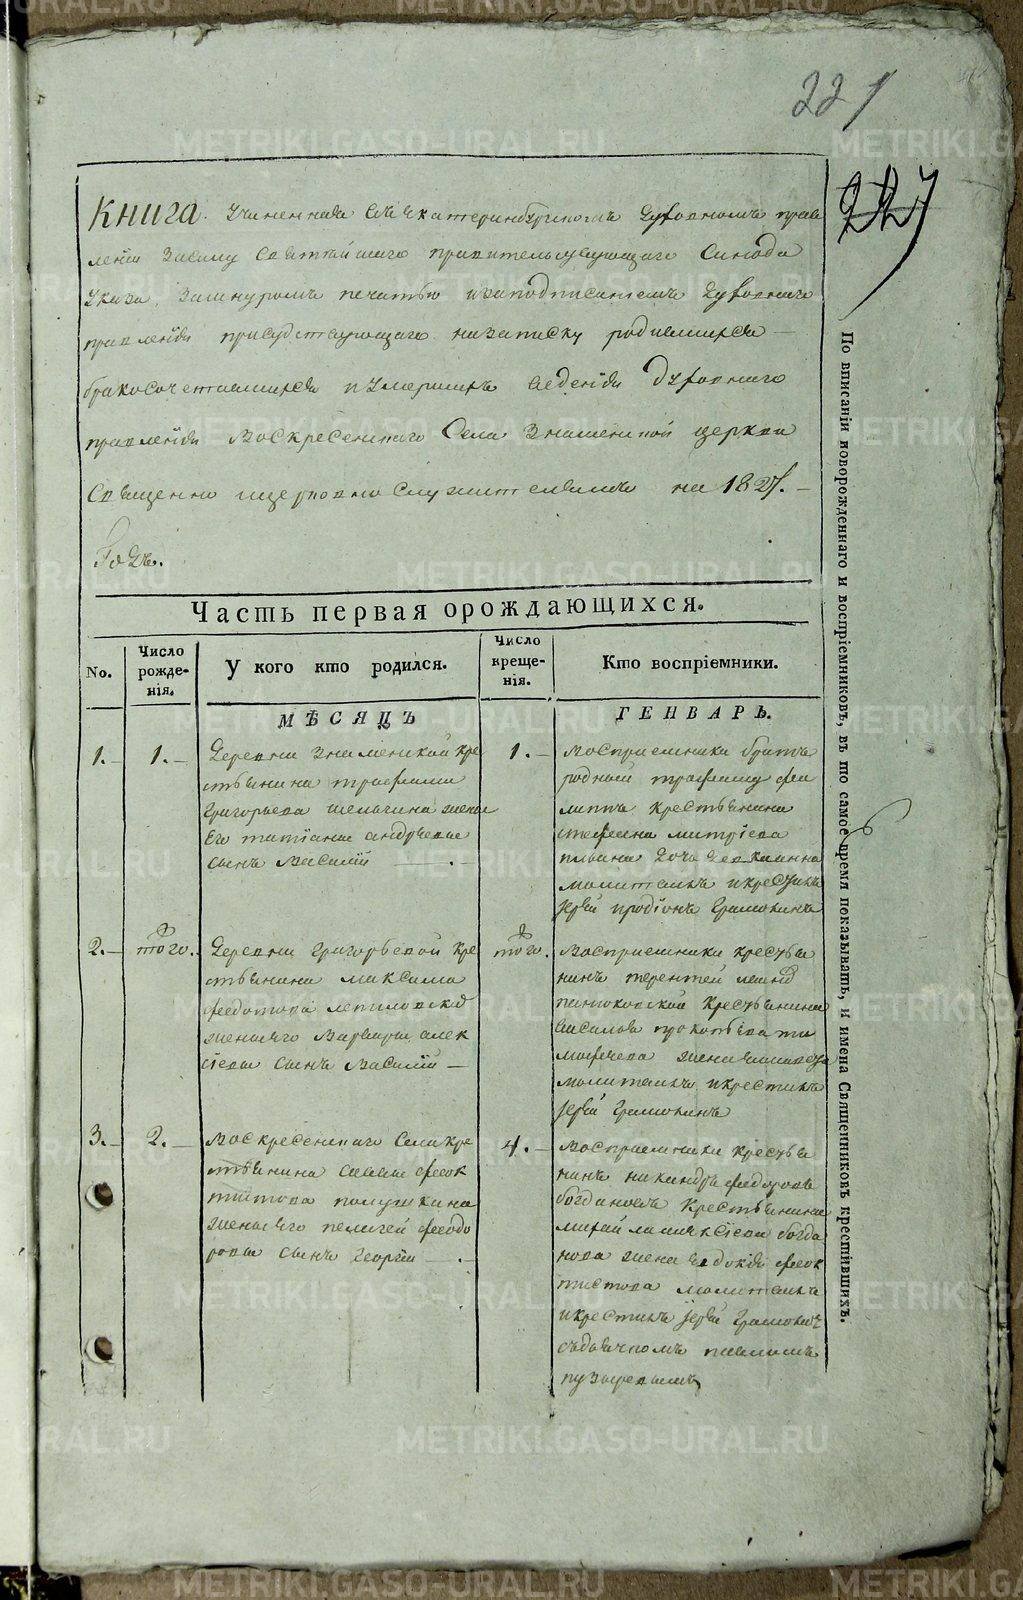 221
227
КНИГА. Учиненная въ екатеринбургскомъ духовномъ прав
ленїи всилу святѣйшаго правительсвующаго Синода
Указа, зашнуромъ печатью изаподписанїемъ духовнаго
правленїя присудствующаго назаписку родившихся —
бракосочетавшихся иумершихъ веденїя духовнаго
правленїя Воскресенскаго Села Знаменской церкви
Священно ицерковно служителямъ на 182
Годъ.
Часть первая орождающихся.
No.
Число рожде-нія.
У кого кто родился.
Число креще-нія.
Кто воспріемники.
МѢСЯЦЪ ГЕНВАРЬ.
1. — 1. —
деревни Знаменской кре
стьянина трофима
григорьева
жены
Его татїаны андреевы
сынъ василїй —
1. —
Восприемники братъ
родной трофиму фи
липъ крестьянина
стефана митрїева
дочь
молитвилъ икрестилъ
їерей родїонъ
2. — того.
деревни григорьевской кре
стьянина максима
федотова
женыего варвары алек
сїевы сынъ василїй —
того.
Восприемники крестья
нинъ терентей
крестьянина
василья прокопьева ти
мофеева жена
молитвилъ икрестилъ
їерей
3. — 2. —
Воскресенскаго Села кре
стьянина саввы феок
тистова полушкина
женыего пелагеи феодо
ровы сынъ георгїй —
4. —
Восприемники крестья
нинъ никандръ федоровъ
богдановъ крестьянина
михайла алексїева богда
нова жена евдокїя феок
тистова молитвилъ
икрестилъ їерей
пузыревымъ
По вписаніи новорожденнаго и воспріемниковъ, въ то самое время показывать, и имена Священниковъ крестившихъ.
METRIKI.GASO-URAL.RU